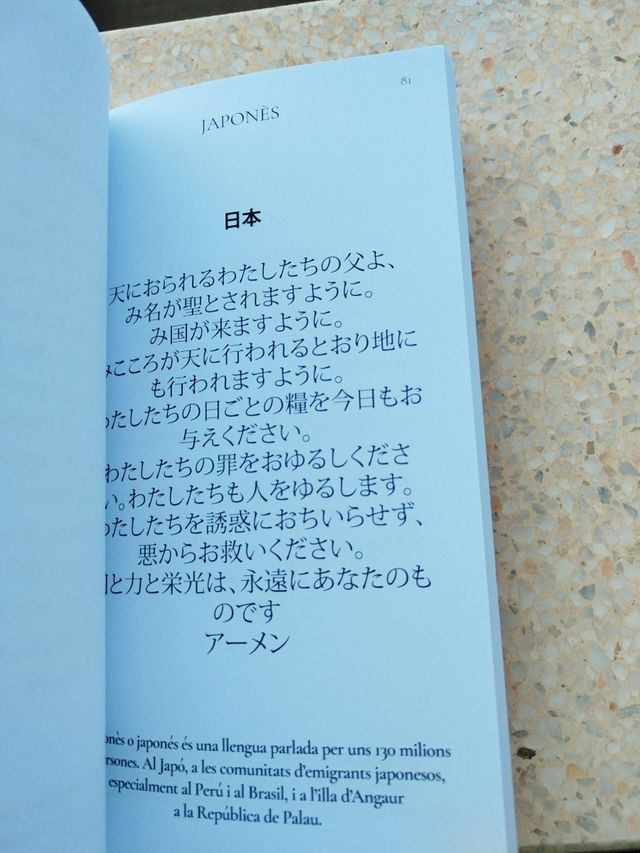 81
JAPONÈS
日本
天におられるわたしたちの父よ、
み名が聖とされますように。
み国が来ますように。
みこころが天に行われるとおり地に
も行われますように。
わたしたちの日ごとの糧を今日もお
与えください。
わたしたちの罪をおゆるしくださ
い。わたしたちも人をゆるします。
わたしたちを誘惑におちいらせず、
悪からお救いください。
と力と栄光は、永遠にあなたのも
のです
アーメン
o japonés és una llengua parlada per uns 130 milions
Al Japó, a les comunitats d'emigrants japonesos,
especialment al Perú i al Brasil, i a l'illa d'Angaur
a la República de Palau.